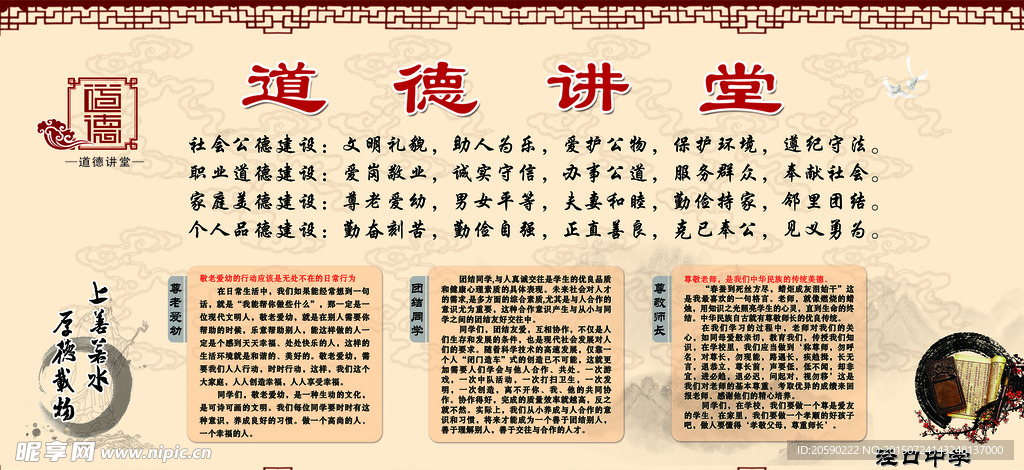 道德讲堂
道德
道德讲堂
社会公德建设：文明礼貌，助人为乐，爱护公物，保护环境，遵纪守法。
职业道德建设：爱岗敬业，诚实守信，办事公道，服务群众，奉献社会。
家庭美德建设：尊老爱幼，男女平等，夫妻和睦，勤俭持家，邻里团结。
个人品德建设：勤奋刻苦，勤俭自强，正直善良，克己奉公，见义勇为。
上善若水
厚德载物
尊老爱幼
敬老爱幼的行动应该是无处不在的日常行为
在日常生活中，我们如果能经常想到一句
话，就是“我能帮你做些什么”，那一定是一
位现代文明人，敬老爱幼，就是在别人需要你
帮助的时候，乐意帮助别人，能这样做的人一
定是个感到天天幸福、处处快乐的人，这样的
生活环境就是和谐的、美好的。敬老爱幼，需
要我们人人行动，时时行动，这样，我们这个
大家庭，人人创造幸福，人人享受幸福。
同学们，敬老爱幼，是一种生动的文化，
是可诗可画的文明。我们每位同学要时时有这
种意识，养成良好的习惯。做一个高尚的人、
一个幸福的人。
团结同学
团结同学,与人真诚交往是学生的优良品质
和健康心理素质的具体表现。未来社会对人才
的需求,是多方面的综合素质,尤其是与人合作的
意识尤为重要，这种合作意识产生与从小与同
学之间的团结友好交往中。
同学们，团结友爱，互相协作，不仅是人
们生存和发展的条件，也是现代社会发展对人
们的要求。随着科学技术的高速发展，仅靠一
个人“闭门造车”式的创造已不可能，这就更
加需要人们学会与他人合作、共处。一次游
戏，一次中队活动，一次打扫卫生，一次发
明，一次创造，离不开你、我、他的共同协
作。协作得好，完成的质量效率就越高，反之
就不然。实际上，我们从小养成与人合作的意
识和习惯，将来才能成为一个善于团结别人，
善于理解别人，善于交往与合作的人才。
尊敬师长
尊敬老师，是我们中华民族的传统美德。
“春蚕到死丝方尽，蜡炬成灰泪始干”这
是我最喜欢的一句格言。老师，就像燃烧的蜡
烛，用知识之光照亮学生的心灵，直到生命的终
结。中华民族自古就有尊敬师长的优良传统。
在我们学习的过程中，老师对我们的关
心，如同母爱般亲切，教育我们，传授我们知
识，在学校里，我们应当做到‘称尊师，勿呼
名，对尊长，勿现能，路遇长，疾趋揖，长无
言，退恭立，尊长前，声要低，低不闻，却非
宜，进必趋，退必迟，问起对，视勿移’这是
我们对老师的基本尊重，考取优异的成绩来回
报老师、感谢他们的精心培养。
同学们，在学校，我们要做一个尊是爱友
的学生，在家里，我们要做一个孝顺的好孩子
吧，做人要懂得‘孝敬父母，尊重师长’。
泾口中学
昵享网 www.nipic.cn
ID:20590222 NO:20150724143248137000